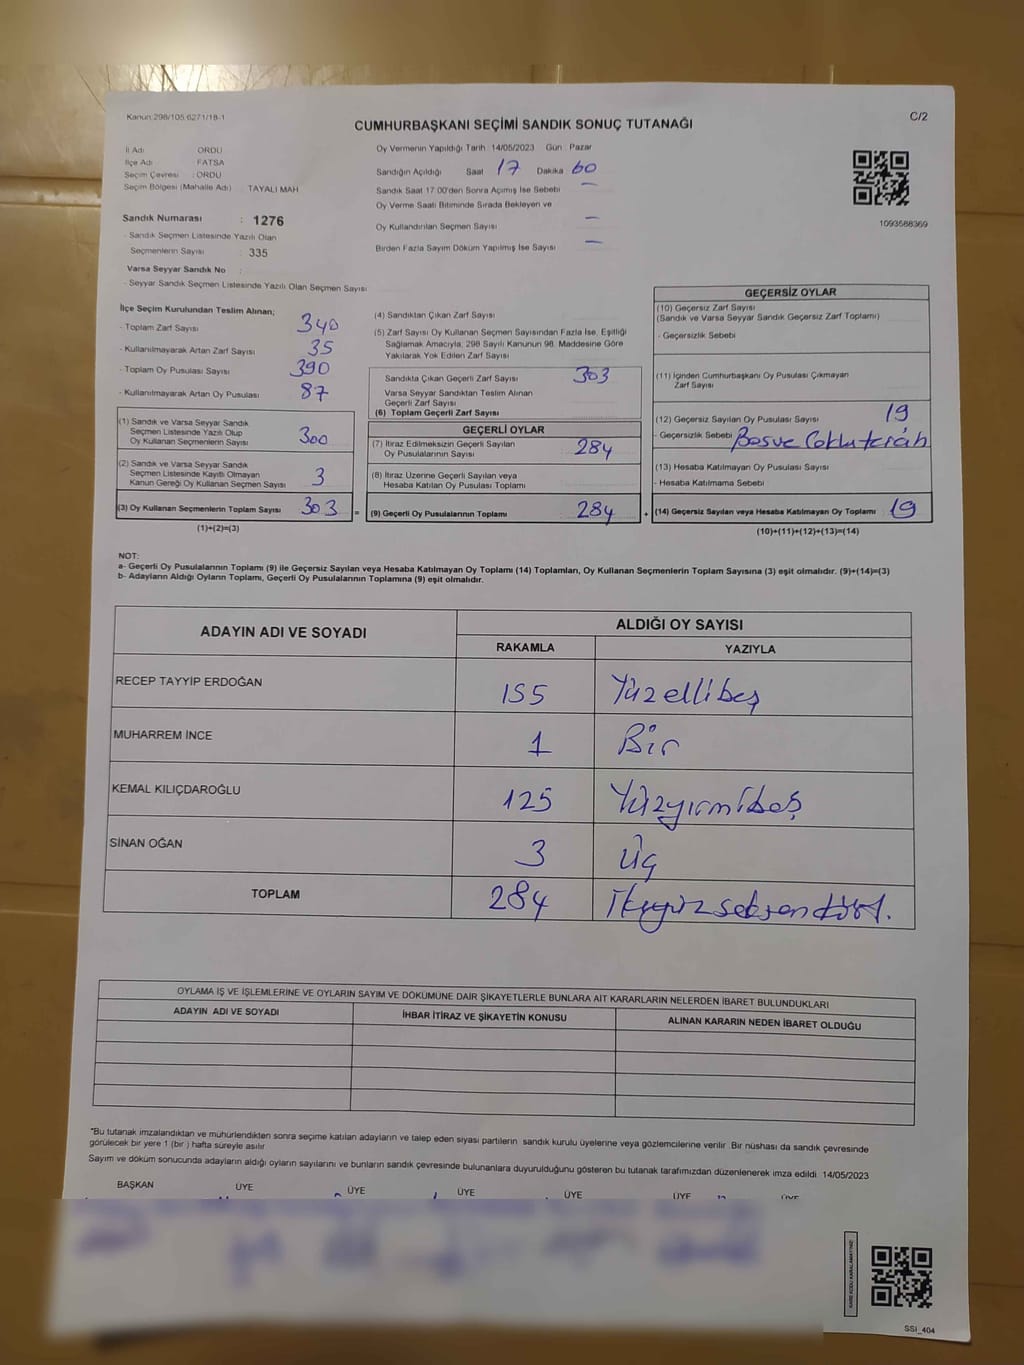 Kanun:298/105,6271/18-1
C/2
CUMHURBAŞKANI SEÇİMİ SANDIK SONUÇ TUTANAĞI
İl Adı ORDU
İlçe Adı FATSA
Seçim Çevresi : ORDU
Seçim Bölgesi (Mahalle Adı) : TAYALI MAH
Sandık Numarası : 1276
- Sandık Seçmen Listesinde Yazılı Olan
Seçmenlerin Sayısı : 335
Varsa Seyyar Sandık No :
- Seyyar Sandık Seçmen Listesinde Yazılı Olan Seçmen Sayısı
Oy Vermenin Yapıldığı Tarih :14/05/2023 Gün : Pazar
Sandığın Açıldığı Saat 17 Dakika 60
Sandık Saat 17:00'den Sonra Açımış İse Sebebi —
Oy Verme Saati Bitiminde Sırada Bekleyen ve
Oy Kullandırılan Seçmen Sayısı —
Birden Fazla Sayım Döküm Yapılmış İse Sayısı —
1093588369
İlçe Seçim Kurulundan Teslim Alınan;
- Toplam Zarf Sayısı 340
- Kullanılmayarak Artan Zarf Sayısı 35
- Toplam Oy Pusulası Sayısı 390
- Kullanılmayarak Artan Oy Pusulası 87
(1) Sandık ve Varsa Seyyar Sandık
Seçmen Listesinde Yazılı Olup
Oy Kullanan Seçmenlerin Sayısı 300
(2) Sandık ve Varsa Seyyar Sandık
Seçmen Listesinde Kayıtlı Olmayan
Kanun Gereği Oy Kullanan Seçmen Sayısı 3
(3) Oy Kullanan Seçmenlerin Toplam Sayısı 303 =
(1)+(2)=(3)
(4) Sandıktan Çıkan Zarf Sayısı
(5) Zarf Sayısı Oy Kullanan Seçmen Sayısından Fazla İse, Eşitliği
Sağlamak Amacıyla, 298 Sayılı Kanunun 98. Maddesine Göre
Yakılarak Yok Edilen Zarf Sayısı
Sandıkta Çıkan Geçerli Zarf Sayısı 303
Varsa Seyyar Sandıktan Teslim Alınan
Geçerli Zarf Sayısı
(6) Toplam Geçerli Zarf Sayısı
GEÇERLİ OYLAR
(7) İtiraz Edilmeksizin Geçerli Sayılan
Oy Pusulalarının Sayısı 284
(8) İtiraz Üzerine Geçerli Sayılan veya
Hesaba Katılan Oy Pusulası Toplamı
(9) Geçerli Oy Pusulalarının Toplamı 284 +
GEÇERSİZ OYLAR
(10) Geçersiz Zarf Sayısı
(Sandık ve Varsa Seyyar Sandık Geçersiz Zarf Toplamı)
- Geçersizlik Sebebi
(11) İçinden Cumhurbaşkanı Oy Pusulası Çıkmayan
Zarf Sayısı
(12) Geçersiz Sayılan Oy Pusulası Sayısı 19
- Geçersizlik Sebebi
(13) Hesaba Katılmayan Oy Pusulası Sayısı
- Hesaba Katılmama Sebebi
(14) Geçersiz Sayılan veya Hesaba Katılmayan Oy Toplamı 19
(10)+(11)+(12)+(13)=(14)
NOT:
a- Geçerli Oy Pusulalarının Toplamı (9) ile Geçersiz Sayılan veya Hesaba Katılmayan Oy Toplamı (14) Toplamları, Oy Kullanan Seçmenlerin Toplam Sayısına (3) eşit olmalıdır. (9)+(14)=(3)
b- Adayların Aldığı Oyların Toplamı, Geçerli Oy Pusulalarının Toplamına (9) eşit olmalıdır.
ADAYIN ADI VE SOYADI
ALDIĞI OY SAYISI
RAKAMLA YAZIYLA
RECEP TAYYİP ERDOĞAN 155 Yüzellibeş
MUHARREM İNCE 1 Bir
KEMAL KILIÇDAROĞLU 125 Yüzyirmibeş
SİNAN OĞAN 3 Üç
TOPLAM 284 İkiyüzseksendört.
OYLAMA İŞ VE İŞLEMLERİNE VE OYLARIN SAYIM VE DÖKÜMÜNE DAİR ŞİKAYETLERLE BUNLARA AİT KARARLARIN NELERDEN İBARET BULUNDUKLARI
ADAYIN ADI VE SOYADI İHBAR İTİRAZ VE ŞİKAYETİN KONUSU ALINAN KARARIN NEDEN İBARET OLDUĞU
"Bu tutanak imzalandıktan ve mühürlendikten sonra seçime katılan adayların ve talep eden siyasi partilerin sandık kurulu üyelerine veya gözlemcilerine verilir. Bir nüshası da sandık çevresinde
görülecek bir yere 1 (bir) hafta süreyle asılır.
Sayım ve döküm sonucunda adayların aldığı oyların sayılarını ve bunların sandık çevresinde bulunanlara duyurulduğunu gösteren bu tutanak tarafımızdan düzenlenerek imza edildi. 14/05/2023
BAŞKAN ÜYE ÜYE ÜYE ÜYE ÜYE ÜYE
KARE KODU KARALAMAYINIZ!
SSI_404